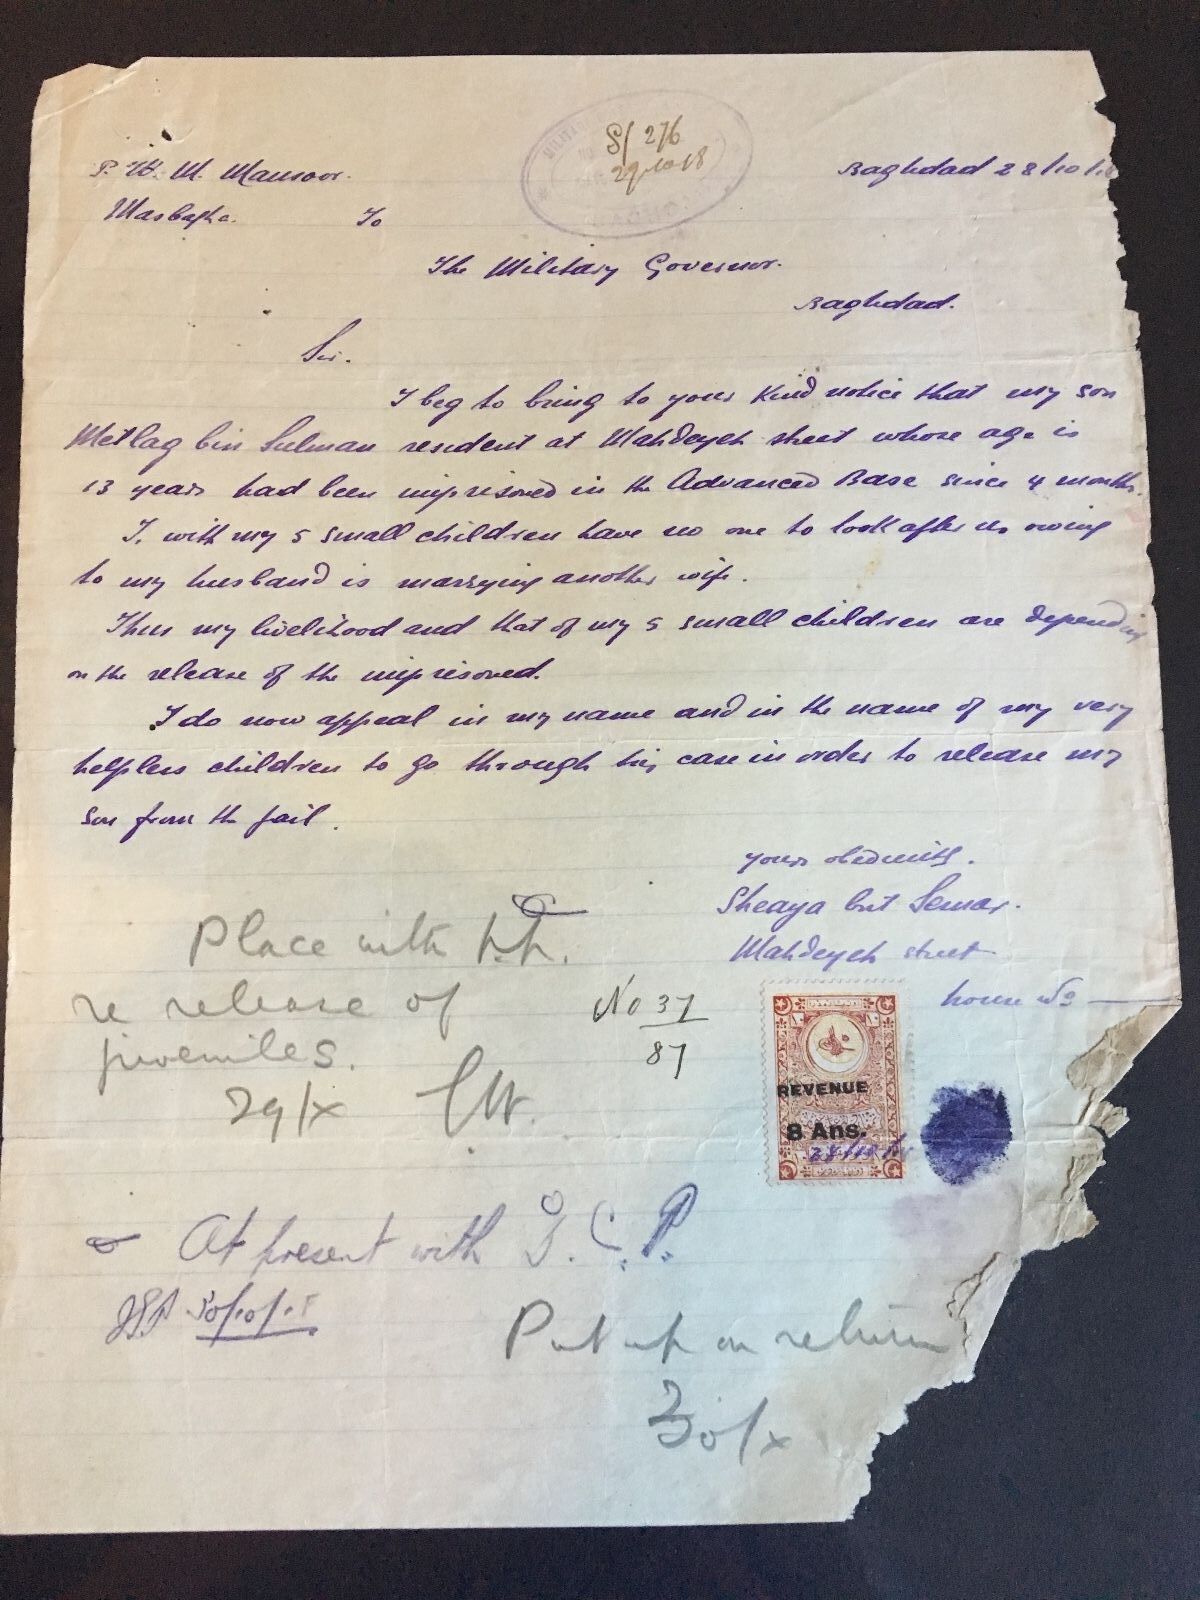 S/ 276
29-10-18
P. W. M. Mansoor.
Masbagha.
Baghdad 28/10/
To
The Military Governor.
Baghdad.
Sir.
I beg to bring to your kind notice that my son
Metlag bin Sulman resident at Mahdeyeh street whose age is
13 years had been imprisoned in the Advanced Base since 4 months.
I. with my 5 small children have no one to look after us owing
to my husband is marrying another wife.
Thus my livelihood and that of my 5 small children are depending
on the release of the imprisoned.
I do now appeal in my name and in the name of my very
helpless children to go through his case in order to release my
son from the jail.
yours obediently.
Sheaya bint Semar.
Mahdeyeh street
house No
Place with p.p.
re release of
juveniles.
29/x
No 37
87
REVENUE
8 Ans.
28/10/
At present with G. C. P.
Put up on return
30/x